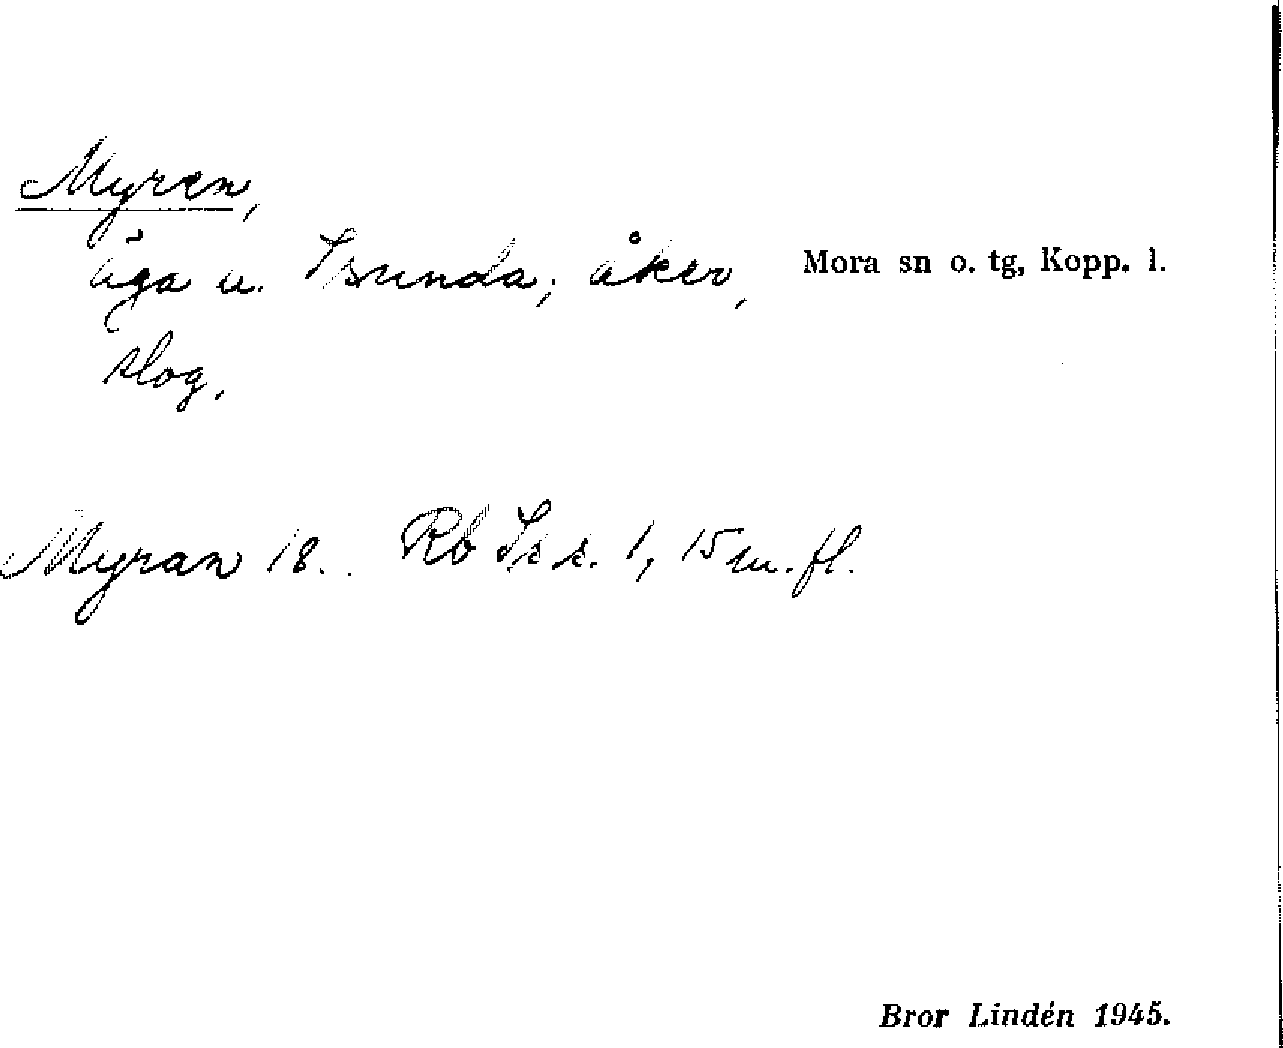 Myren,
äga u. Isunda; åker,
slog.
Mora sn o. tg, Kopp. l.
Myran 18. Rb Is s. 1, 15 m. fl.
Bror Lindén 1945.